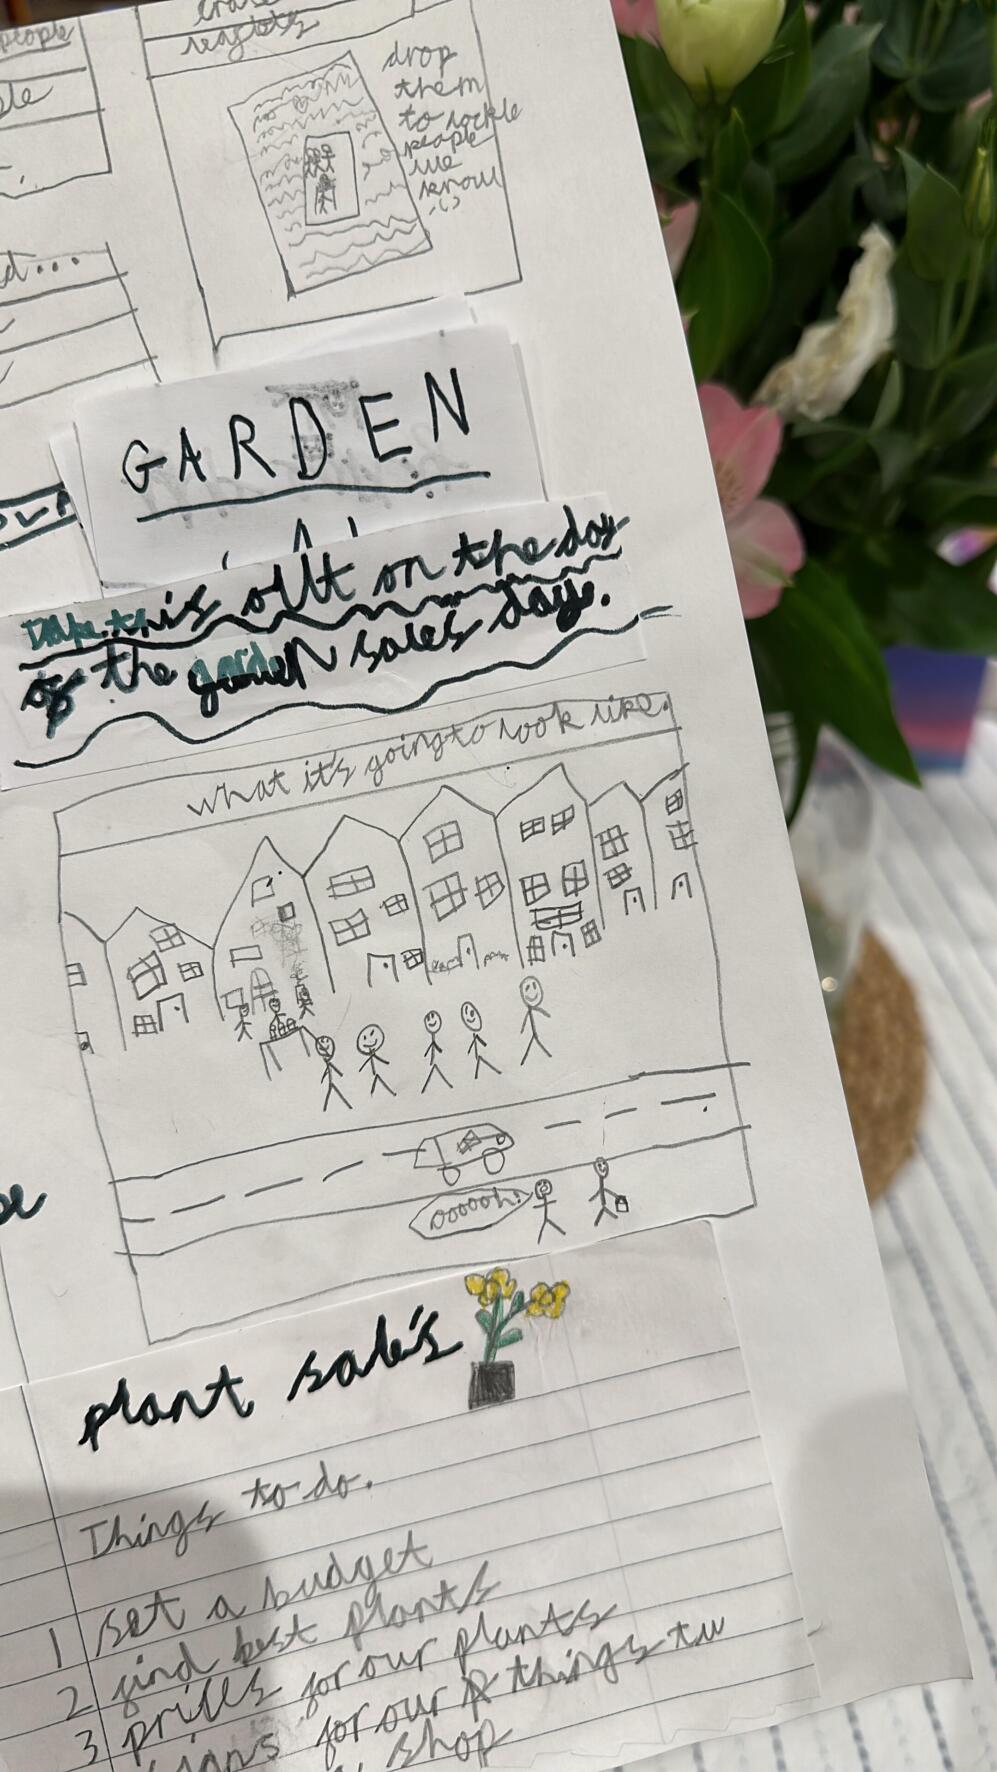 people
leaflets
drop
them
to
people
we
know
GARDEN
this off on the day
of the garden sales day.
what it's going to look like.
ooooh!
plant sale's
Things to do.
1 set a budget
2 find best plants
3 prices for our plants
signs for our things
shop